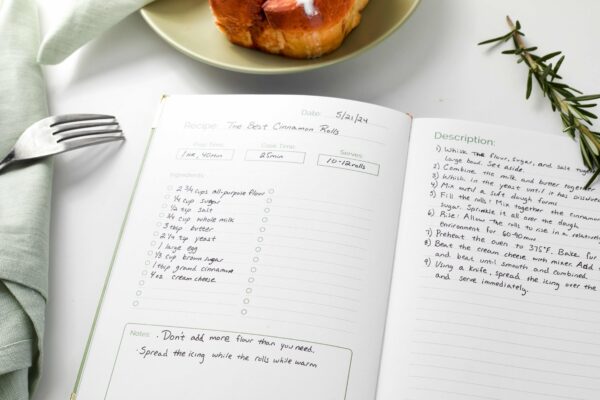 Date: 5/21/24
Recipe: The Best Cinnamon Rolls
Prep Time:
Cook Time:
Serves:
1hr, 40min
25min
10-12 rolls
Ingredients:
2 3/4 cups all-purpose flour
1/4 cup sugar
1/2 tsp salt
3/4 cup whole milk
3 tbsp butter
2 1/4 tsp yeast
1 large egg
1/3 cup brown sugar
1 tbsp ground cinnamon
4 oz cream cheese
Notes: · Don't add more flour than you need.
· Spread the icing while the rolls while warm
Description:
1) Whisk the flour, sugar, and salt
large bowl. Set aside.
2) Combine the milk and butter together
3) Whisk in the yeast until it has dissolved
4) Mix until a soft dough forms
5) Fill the rolls: Mix together the
sugar. Sprinkle it all over the dough
6) Rise: Allow the rolls to rise in a
environment for 60-90min
7) Preheat the oven to 375°F. Bake for
8) Beat the cream cheese with mixer. Add
and beat until smooth and combined.
9) Using a knife, spread the icing over the
and serve immediately.